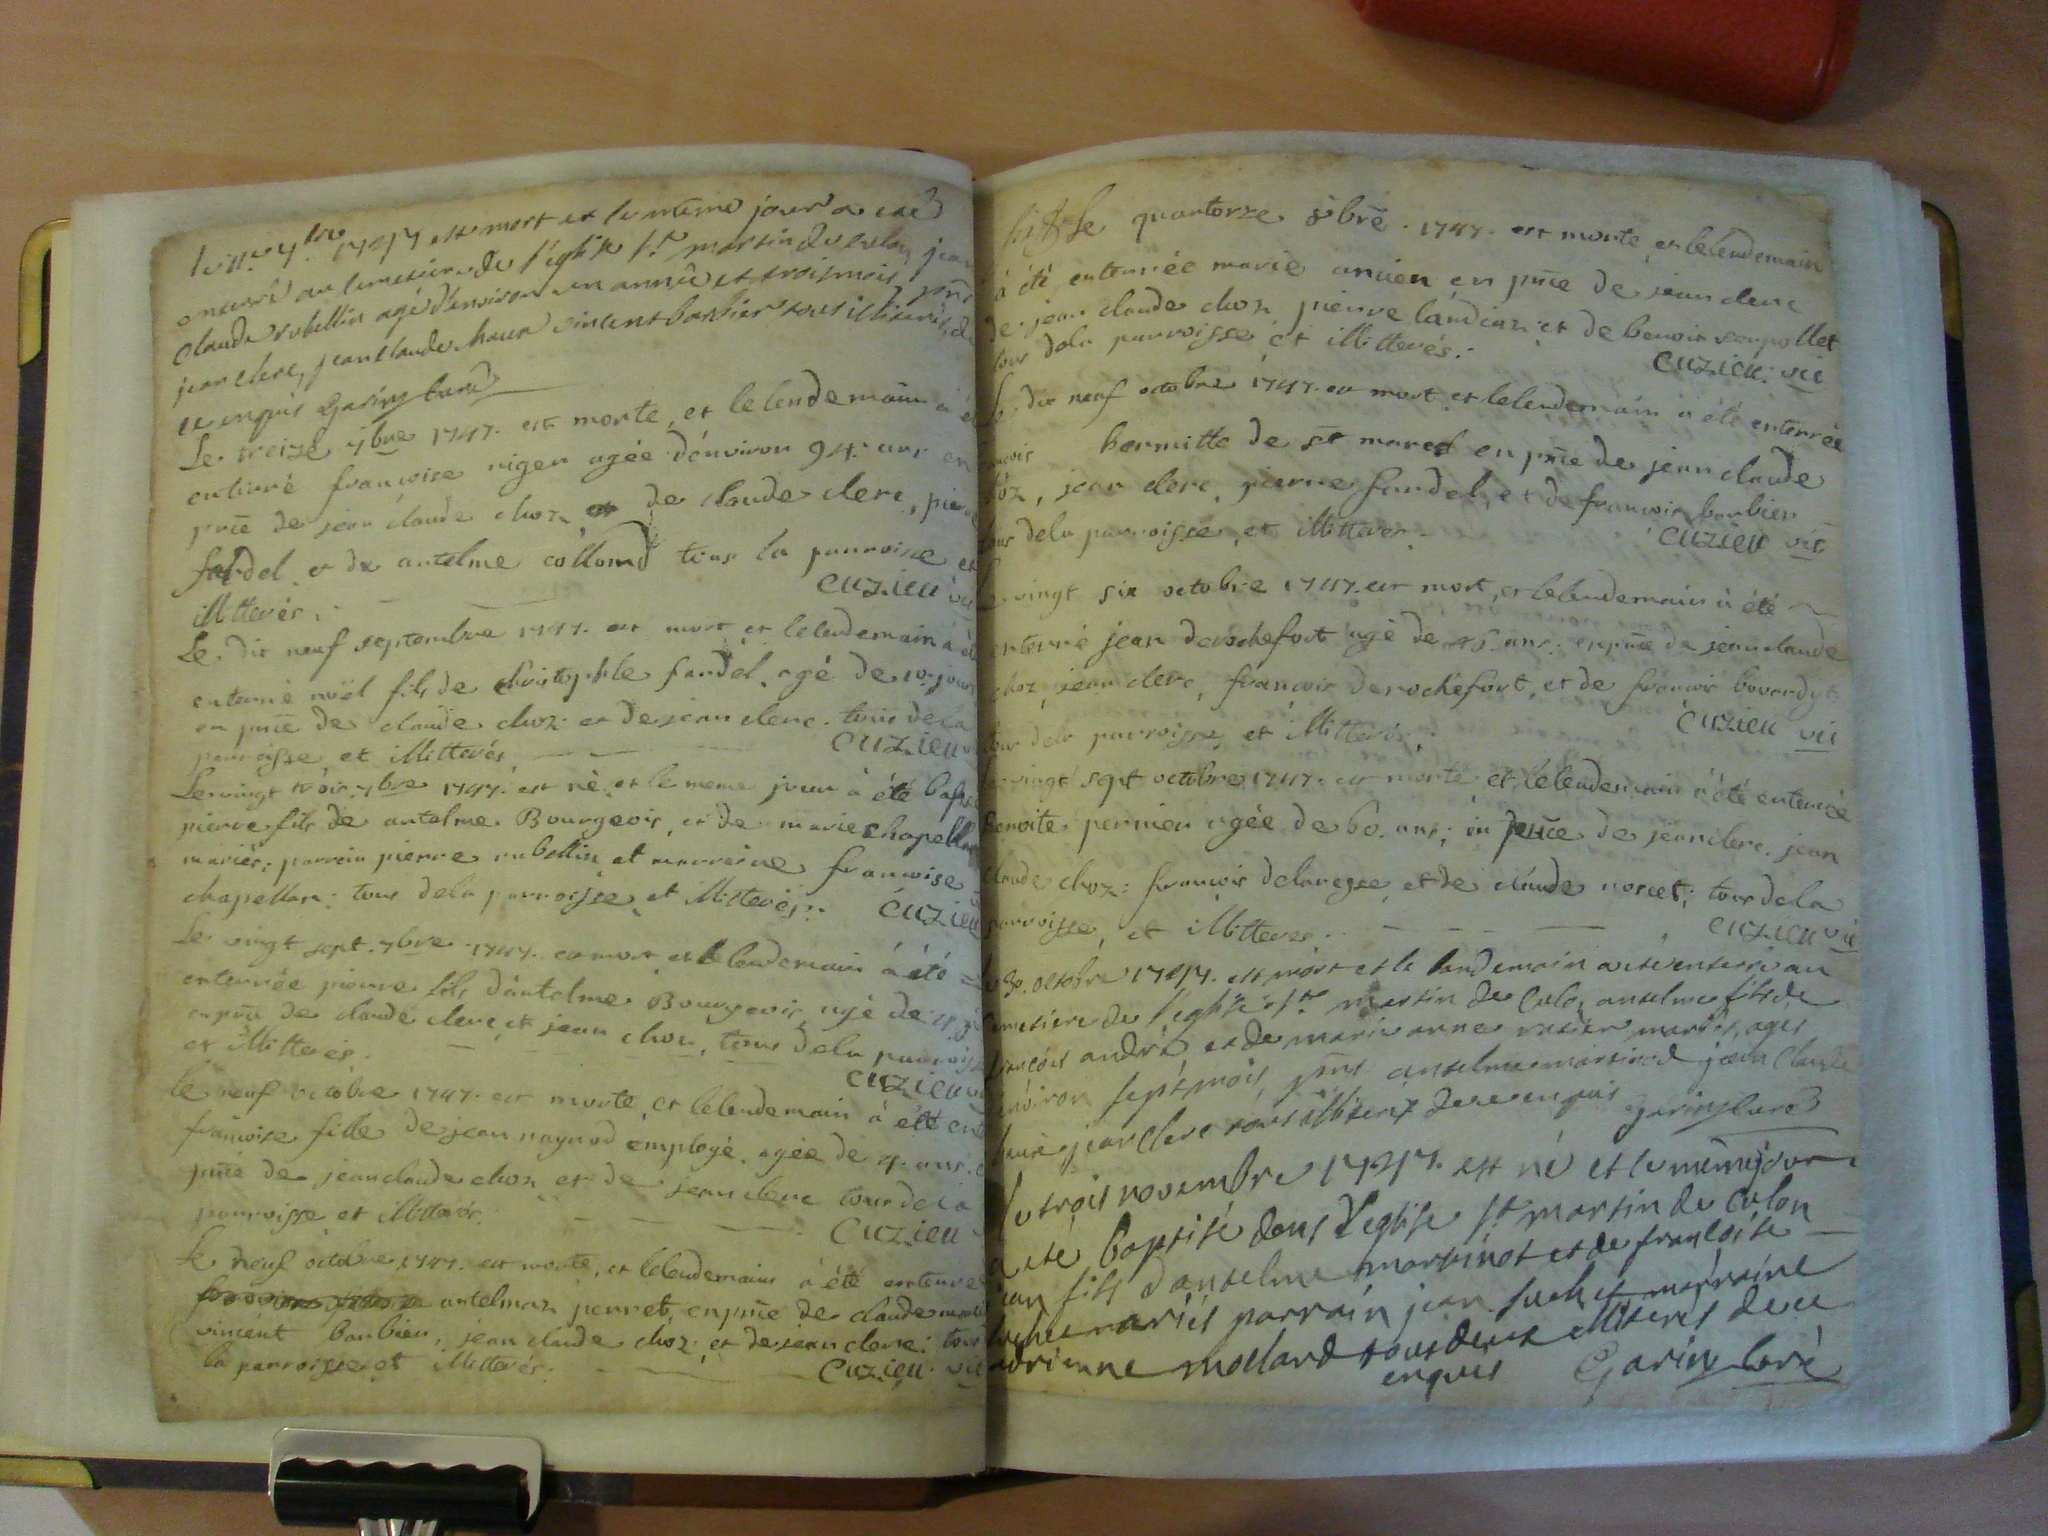 le 11e 7bre 1747 est mort et le même jour a eté
enterré au cimetiere de l'eglise St martin de Culoz jean
claude rubellin agé d'environ un année et trois mois pnts
jean clerc, jean claude chaux vincent barbier tous illiterés de
ce enquis Garin Curé
Le treize 7bre 1747. est morte, et le lendemain à é
enterré francoise nigen agée d'environ 94. ans en
pñce de jean claude choz de claude clerc, pierre
fardel et de antelme collomd tous la parroisse et
illitterés. cuzieu vic
Le dix neuf septembre 1747. est mort et le lendemain à été
enterré noël fils de christophle fardel agé de 10. jours
en pñce de claude choz et de jean clerc. tous de la
parroisse et illitterés cuzieu
Le vingt trois 7bre 1747. est né et le meme jour à été bapt
pierre fils de antelme Bourgeois, et de marie chapellan
mariés; parrein pierre rubellin et marreine francoise
chapellan; tous dela parroisse et illitterés. cuzieu
Le vingt sept 7bre 1747. est mort et le lendemain à été
enterrée pierre fils d'antelme Bourgeois agé de 4. j
en pñce de claude clerc, et jean choz, tous dela parroisse
et illitterés. cuzieu
le neuf octobre 1747. est morte, et le lendemain à été ent
francoise fille de jean naynod employé, agée de 4. ans. e
pñce de jean claude choz et de jean clerc tous de la
parroisse et illitterés. cuzieu
Le neuf octobre 1747. est morte, et le lendemain à été enterré
antelmaz perret, en pñce de claude
vincent barbier, jean claude choz et de jean clerc; tous
la parroisse et illitterés. cuzieu vic
Le quatorze 8bre 1747. est morte, et le lendemain
à été enterrée marie en pñce de jean clerc
de jean claude choz, pierre et de benoit serpollet
tous dela parroisse et illitterés. cuzieu vic
Le dix neuf octobre 1747. est mort et le lendemain à été enterrée
hermitte de St marcel en pñce de jean claude
choz, jean clerc, pierre fardel, et de francois barbier
tous dela parroisse, et illitteres. cuzieu vic
Le vingt six octobre 1747. est mort, et le lendemain à été
enterré jean derochefort agé de 45 ans. en pñce de jean claude
choz, jean clerc, francois derochefort, et de francois
tous dela parroisse, et illitterés. cuzieu vic
Le vingt sept octobre 1747. est morte et le lendemain à été enterrée
Benoite pernieu agée de 60. ans; en pñce de jean clerc. jean
claude choz: francois et de claude; tous dela
parroisse, et illitteres. cuzieu vic
le 30. octobre 1747. est mort et le landemain a eté enterré au
cimetiere de l'eglise St martin de Culoz anselme fils de
françois andré et de marie anne mariés, agés
environ sept mois, pnts anselme martinod jean claude
chaux jean clerc tous illiterés de ce enquis Garin Curé
le trois novembre 1747. est né et le même jour
a eté baptisé dans l'eglise St martin de Culon
jean fils d'anselme martinot et de francoise
suchet mariés parrain jean suchet marraine
adrienne mollard tous deux illiterés de ce
enquis Garin Curé